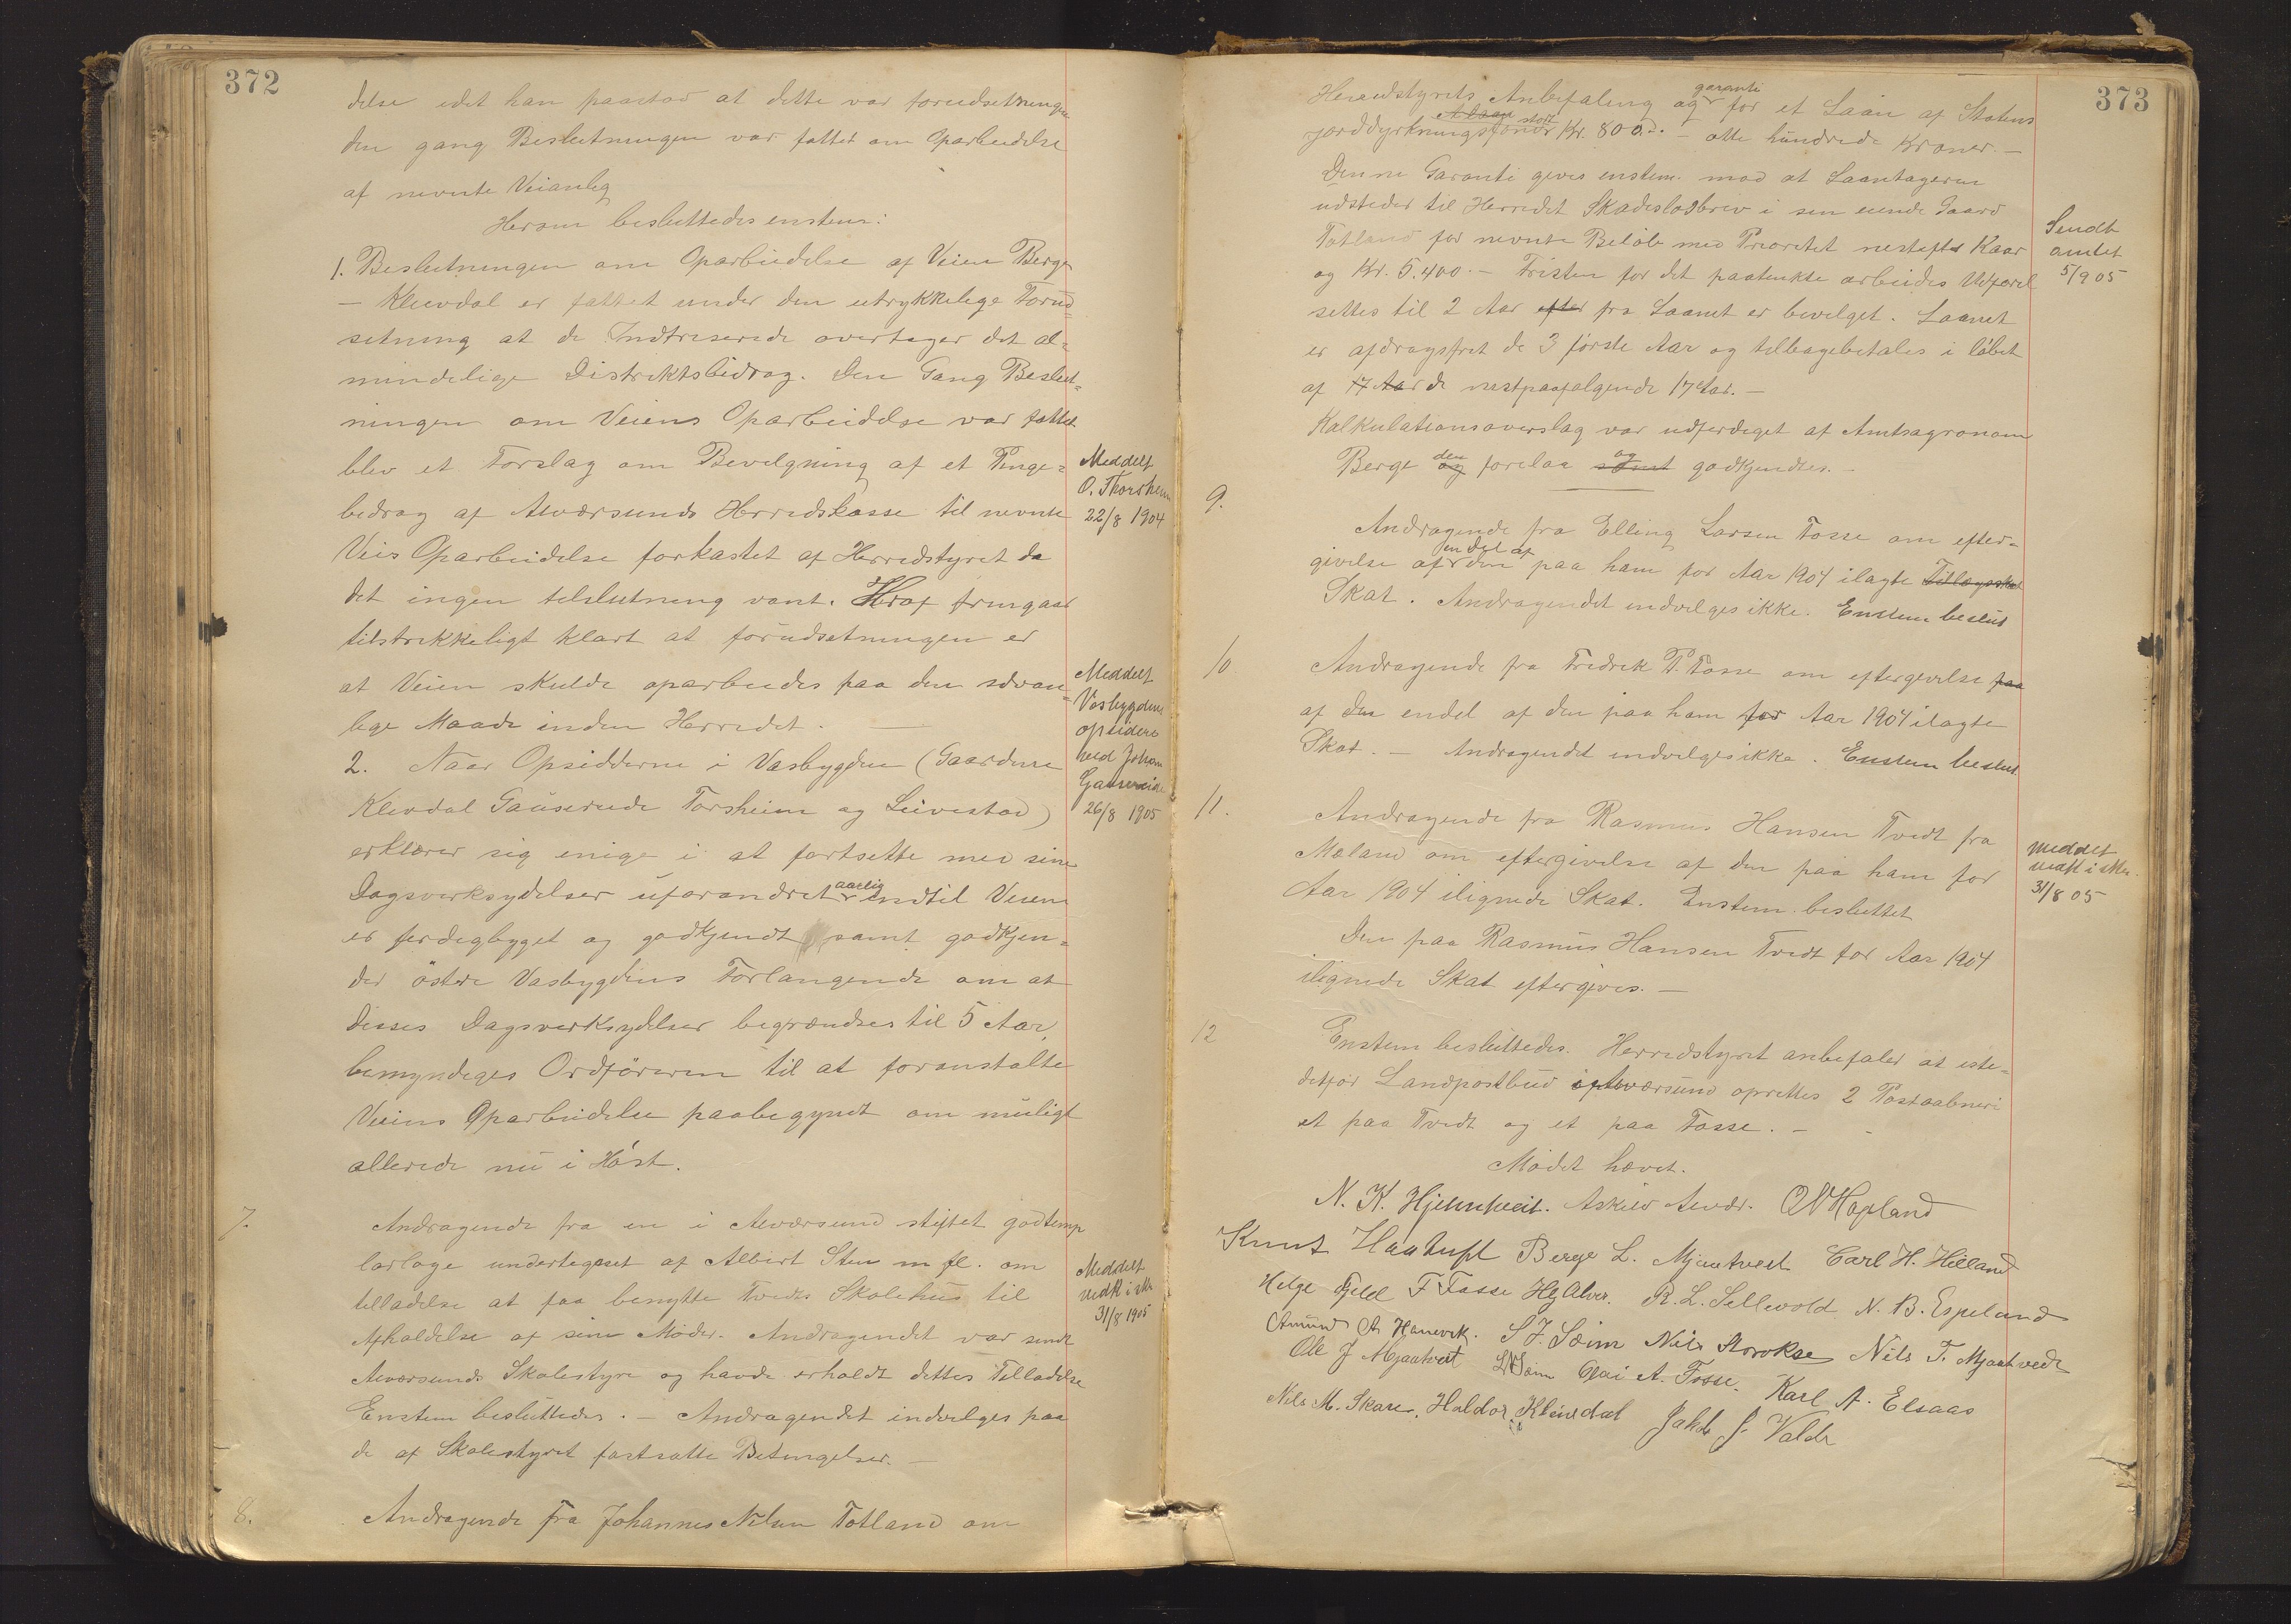 372
delse idet han paastod at dette var forudsetningen
den gang Beslutningen var fattet om Oparbeidelse
af nevnte Veianlæg
Herom besluttedes enstem:
1. Beslutningen om Oparbeidelse af Veien Berge
– Klevdal er fattet under den utrykkelige Forud-
setning at de Indtreserede overtager det al-
mindelige Distriktsbidrag. Den Gang Beslut-
ningen om Veiens Oparbeidelse var fattet
blev et Forslag om Bevilgning af et Penge-
bedrag af Alversunds Herredskasse til nevnte
Veis Oparbeidelse forkastet af Herredstyret da
det ingen tilslutning vant. Heraf fremgaar
tilstrekkeligt klart at forudsetningen er
at Veien skulde oparbeides paa den sdvan-
lige Maade inden Herredet. —
2. Naar Opsidderne i Vasbygden (Gaardene
Klevdal Gauserede Torsheim og Leivestad)
erklærer sig enige i at fortsette med sine
Dagsverksydelser uforandret aarlig indtil Veien
er ferdigbygget og godkjendt samt godkjen-
der östre Vasbygdens Forlangende om at
disses Dagsverksydelser begrændses til 5 Aar,
bemyndiges Ordföreren til at foranstalte
Veiens Oparbeidelse paabegyndt om muligt
allerede nu i Höst.
Meddelt
O. Thorsheim
22/8 1904
Meddelt
Vasbygdens
opsidere
ved Johan
26/8 1905
7. Andragende fra en i Alversund stiftet godtemp
larloge undertegnet af Albert Sten m fl. om
tilladelse at faa benytte Tvedt Skolehus til
Afholdelse af sine Möder. Andragendet var sendt
Alversunds Skolestyre og havde erholdt dettes Tilladelse
Enstem besluttedes. – Andragendet indvilges paa
de af Skolestyret fastsatte Betingelser. —
Meddelt
31/8 1905
8. Andragende fra Johannes Nilsen Totland om
373
Herredstyrets Anbefaling og garanti for et Laan af Statens
jorddyrkningsfond stort Kr. 800.- – otte hundrede Kroner. –
Denne Garanti gives enstem. mod at Laantageren
udsteder til Herredet Skadeslösbrev i sin eiende Gaard
Totland for nevnte Belöb med Prioritet nestefter Kaar
og Kr. 5.400.– Fristen for det paatenkte arbeides Udförel
settes til 2 Aar efter fra Laanet er bevilget. Laanet
er afdragsfrit de 3 förste Aar og tilbagebetales i löbet
af 17 Aar de nestpaafölgende 17 Aar. –
Kalkulationsoverslag var udferdiget af Amtsagronom
Berge og den forelaa samt og godkjendtes. –
Sendt
amtet
5/9 05
9.
Andragende fra Elling Larsen Fosse om efter-
givelse af en del af den paa ham for Aar 1904 ilagte Tillægsskat
Skat. Andragendet indvilges ikke. Enstem beslut
10 Andragende fra Fredrik P. Fosse om eftergivelse paa
af den endel af den paa ham for Aar 1904 ilagte
Skat. – Andragendet indvilges ikke. Enstem beslut
11. Andragende fra Rasmus Hansen Tvedt fra
Mæland om eftergivelse af den paa ham for
Aar 1904 ilignede Skat. Enstem. besluttet
Den paa Rasmus Hansen Tvedt for Aar 1904
ilignede Skat eftergives. –
meddelt
31/8 05
12 Enstem besluttedes. Herredstyret anbefaler at iste-
detfor Landpostbud i Alversund oprettes 2 Postaabneri
et paa Tvedt og et paa Fosse. –
Mödet hævet.
N. K. Hjelmtveit. Askild Alver. O N Hopland
Knut Haatuft Berge L. Mjaatveit Carl H. Helland
Helge Fjeld F Fosse Hg Alver. R. L. Sellevold N. B. Espeland
Amund A Hanevik. S J. Seim Nils Storoksen Nils T. Mjaatvedt
Ole J Mjaatveit L Seim A. Fosse. Karl A. Elsaas
Nils M. Skare, Haldor Kleivdal Jakob J. Valde